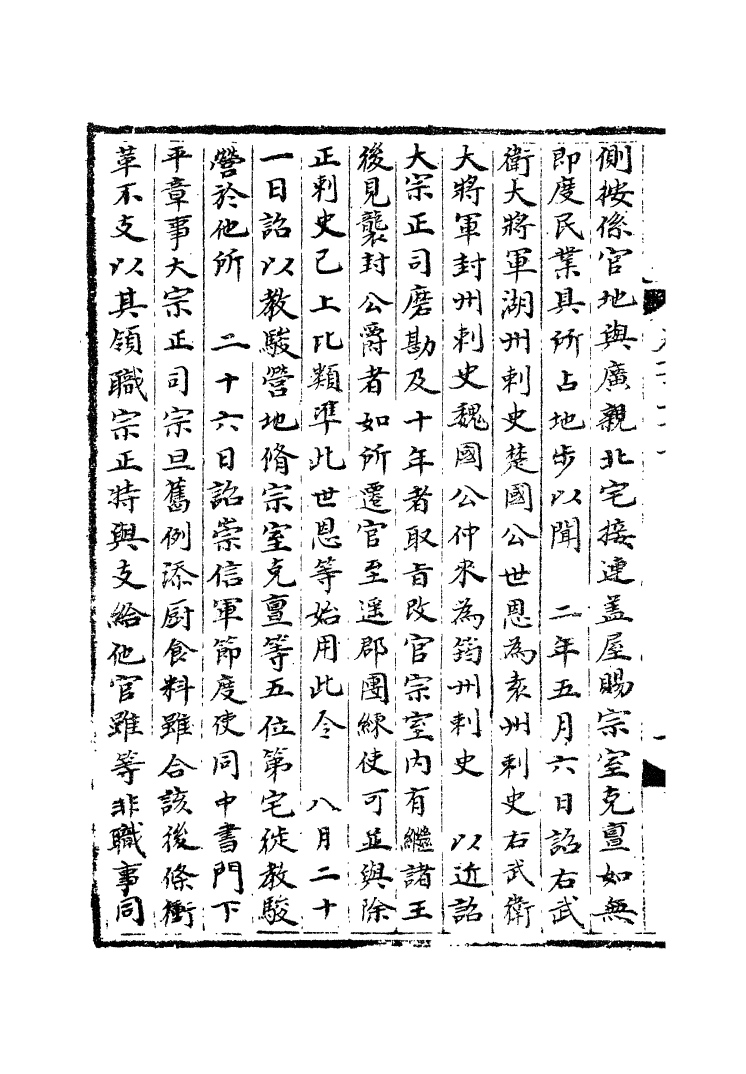 側按係官地與廣親北宅接連盖屋賜宗室克亶如無
即度民業具所占地步以聞　二年五月六日詔右武
衛大將軍湖州刺史楚國公世恩為袁州刺史右武衛
大將軍封州刺史魏國公仲來為筠州刺史　以近詔
大宗正司磨勘及十年者取旨改官宗室内有繼諸王
後見襲封公爵者如所遷官至遥郡團練使可並與除
正刺史已上比類準此世恩等始用此令　八月二十
一日詔以教駿營地脩宗室克亶等五位第宅徙教駿
營於他所　二十六日詔崇信軍節度使同中書門下
平章事大宗正司宗旦舊例添厨食料雖合該後條衝
革不支以其領職宗正特與支給他官雖等非職事同